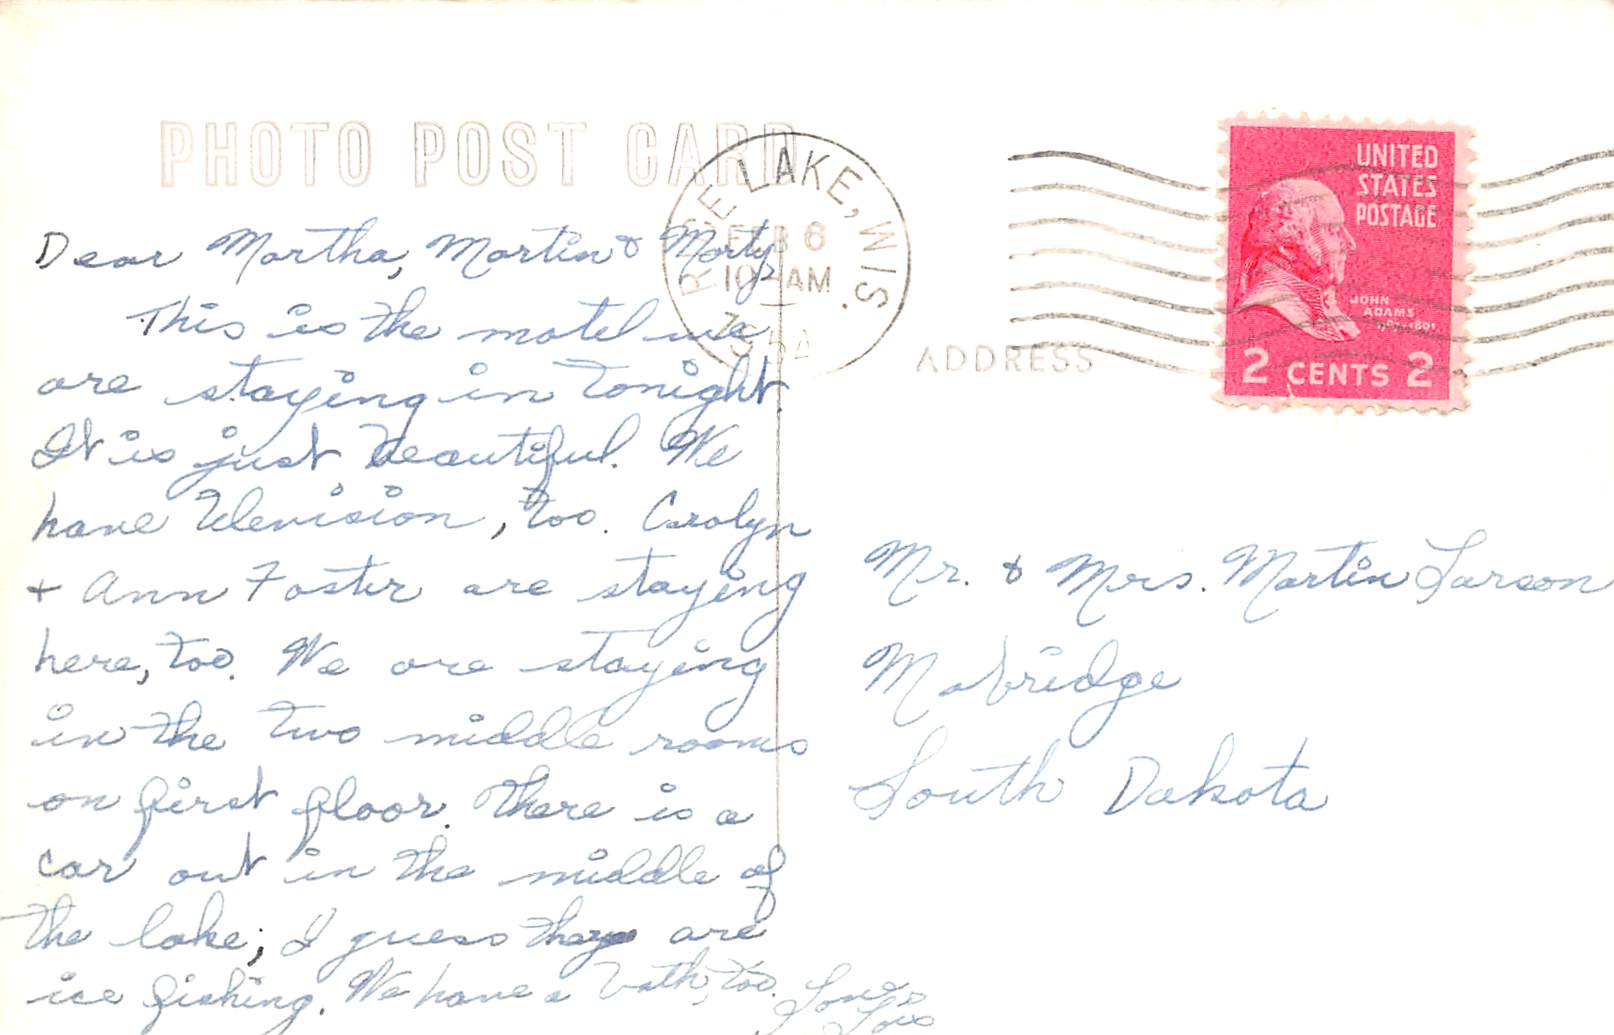 PHOTO POST CARD
RICE LAKE, WIS.
FEB 6
10 AM
1954
UNITED
STATES
POSTAGE
JOHN
ADAMS
1797-1801
2 CENTS 2
ADDRESS
Dear Martha, Martin & Marty,
This is the motel we
are staying in tonight.
It is just beautiful. We
have television, too. Carolyn
+ Ann Foster are staying
here, too. We are staying
in the two middle rooms
on first floor. There is a
car out in the middle of
the lake; I guess they are
ice fishing. We have a bath, too.
Love,
Lois
Mr. & Mrs. Martin Larson
Mobridge
South Dakota